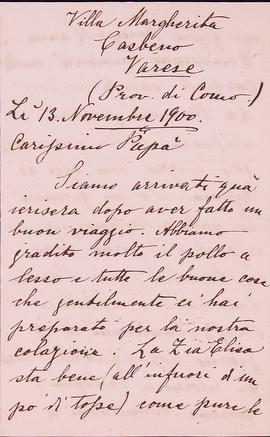 Villa Margherita
Casbeno
Varese
(Prov. di Como.)
Lì 13. Novembre 1900.
Carissimo Papà
Siamo arrivati quà
ierisera dopo aver fatto un
buon viaggio. Abbiamo
gradito molto il pollo a
lesso e tutte le buone cose
che gentilmente ci hai
preparato per la nostra
colazione. La Zia Elisa
sta bene (all'infuori d'un
pò di tosse) come pure le